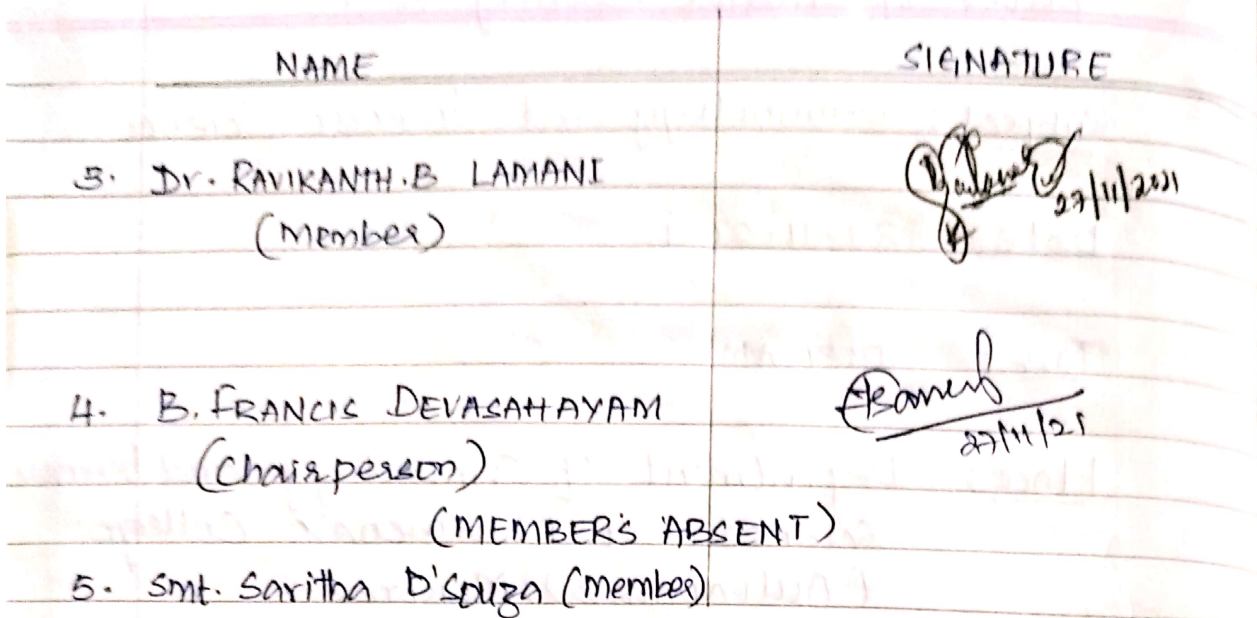 NAME SIGNATURE
3. Dr. RAVIKANTH.B LAMANI
(Member)
27/11/2021
4. B. FRANCIS DEVASAHAYAM
(Chairperson)
27/11/21
(MEMBER'S ABSENT)
5. Smt. Saritha D'Souza (member)